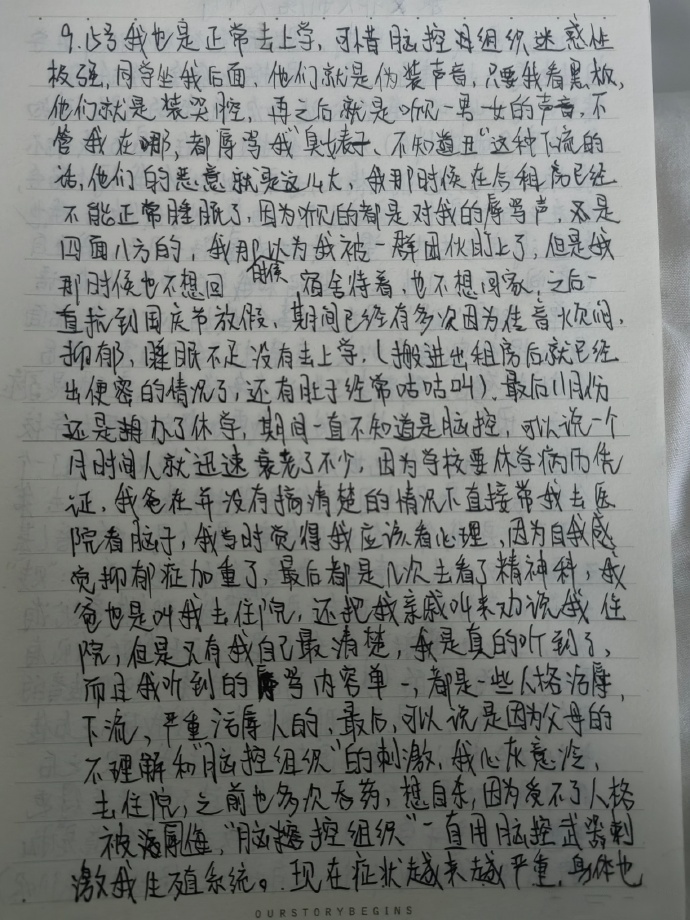 9.15号我也是正常去上学，可惜脑控组织迷惑性
极强，同学坐我后面，他们就是伪装声音，只要我看黑板，
他们就是装哭腔，再之后就是听见一男一女的声音，不
管我在哪，都辱骂我"臭婊子、不知道丑"这种下流的
话，他们的恶意就是这么大，我那时候在出租房已经
不能正常睡眠了，因为听见的都是对我的辱骂声，还是
四面八方的，我那时候以为我被一群团伙盯上了，但是我
那时候也不想回宿舍待着，也不想回家，之后一
直抗到国庆节放假，期间已经有多次因为焦虑烦闷，
抑郁，睡眠不足没有去上学，（搬进出租房后就已经
出便密的情况了，还有肚子经常咕咕叫）.最后11月份
还是办了休学，期间一直不知道是脑控，可以说一个
月时间人就迅速衰老了不少，因为学校要休学病历凭
证，我爸在并没有搞清楚的情况下直接带我去医
院看脑子，我当时觉得我应该看心理，因为自我感
觉抑郁症加重了，最后都是几次去看了精神科，我
爸也是叫我去住院，还把我亲戚叫来劝说我住
院，但是只有我自己最清楚，我是真的听到了，
而且我听到的辱骂内容单一，都是一些人格污辱，
下流，严重污辱人的，最后，可以说是因为父母的
不理解和"脑控组织"的刺激，我心灰意冷，
去住院，之前也多次吞药，想自杀，因为受不了人格
被侮，"脑控组织"一直用脑控武器刺
激我生殖系统。现在症状越来越严重，身体也
OURSTORYBEGINS